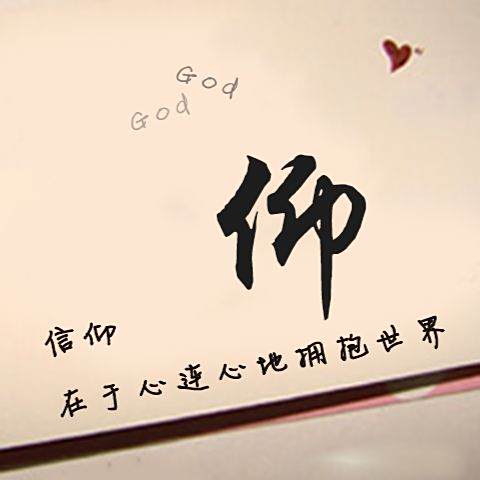 God
God
仰
信仰
在于心连心地拥抱世界